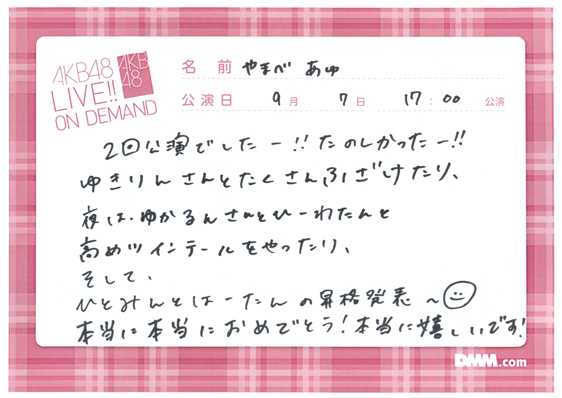 AKB48
LIVE!!
ON DEMAND
AKB
48
名 前 やまべ あゆ
公演日 9月 7日 17:00 公演
2回公演でしたー!!たのしかったー!!
ゆきりんさんとたくさんふざけたり、
夜は、ゆかるんさんとひーわたんと
高めツインテールをやったり、
そして、
ひとみんとはーたんの昇格発表〜
本当に本当におめでとう!本当に嬉しいです!
DMM.com